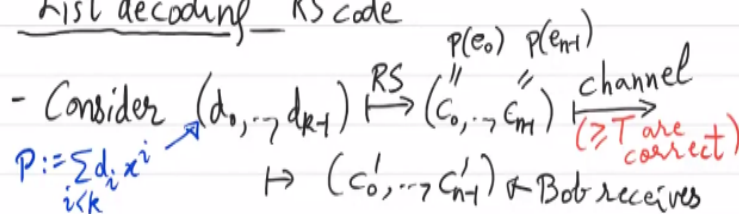 List decoding RS code
p(e₀) p(eₙ₋₁)
- Consider (d₀,..,dₖ₋₁) RS ↦ (c₀,..,cₙ₋₁) channel ↦
(≥T are correct)
P:=Σ dᵢxⁱ
i<k
↦ (c'₀,..,c'ₙ₋₁) ← Bob receives